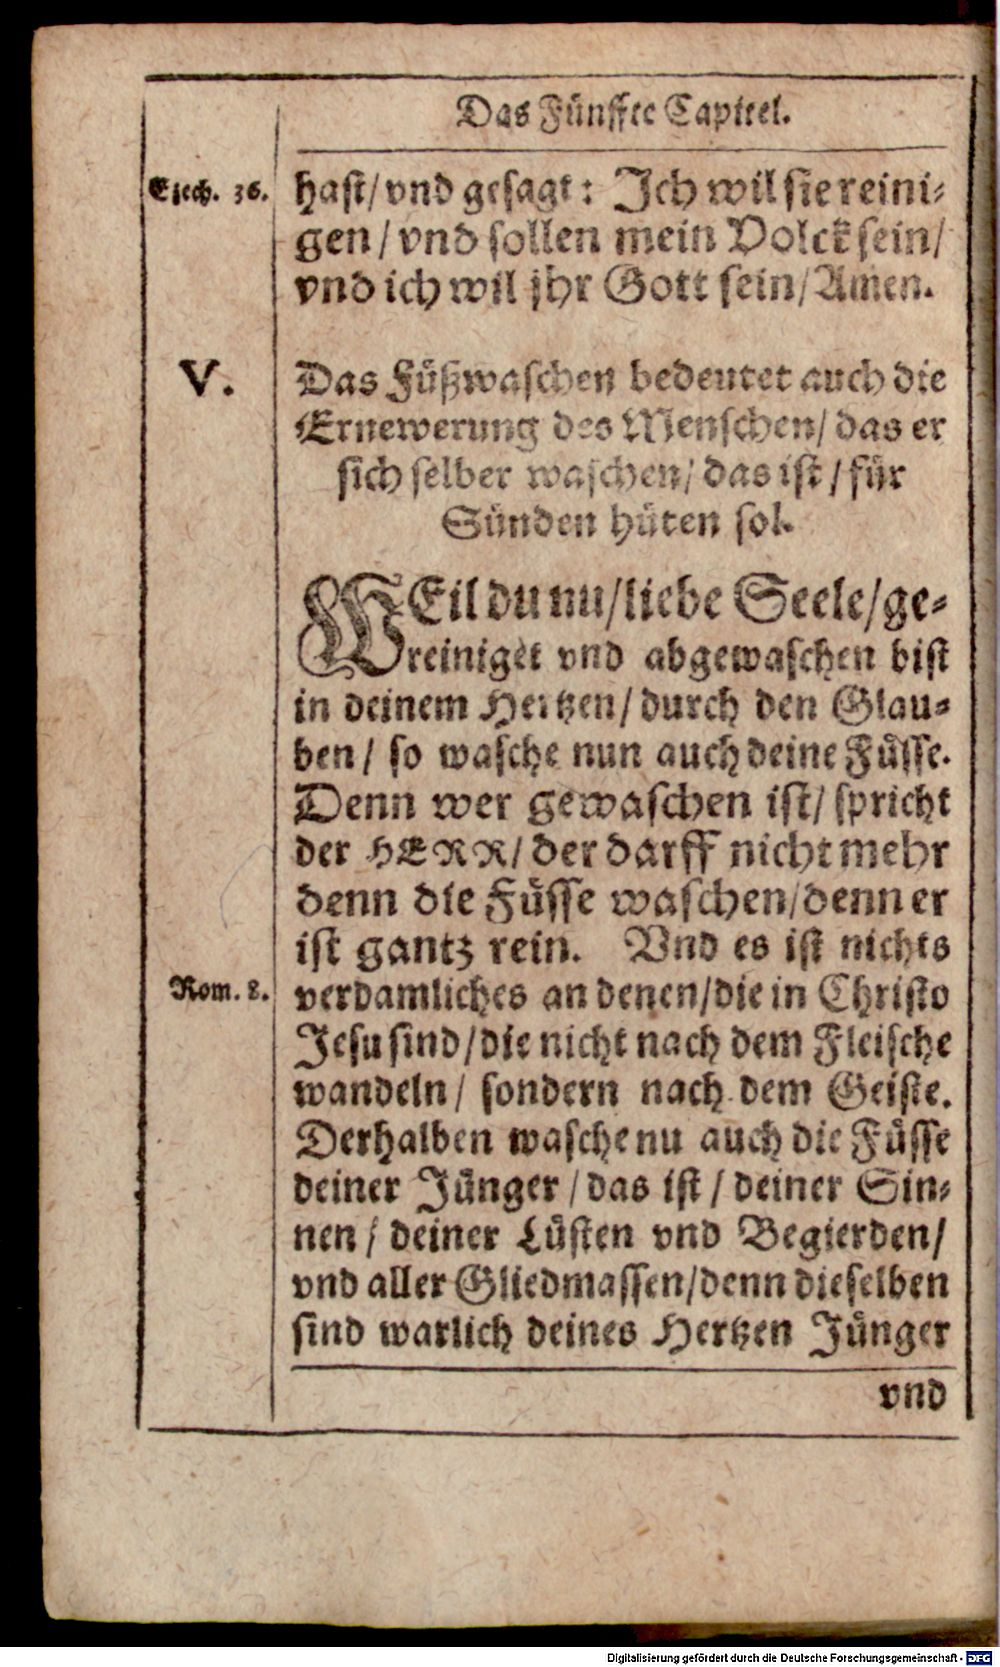 Das Fünffte Capittel.
Ezech. 36.
hast/ vnd gesagt: Jch wil sie reini-
gen/ vnd sollen mein Volck sein/
vnd ich wil jhr Gott sein/ Amen.
V.
Das Füßwaschen bedeutet auch die
Ernewerung des Menschen/ das er
sich selber waschen/ das ist/ für
Sünden hüten sol.
WEil du nu/ liebe Seele/ ge-
reiniget vnd abgewaschen bist
in deinem Hertzen/ durch den Glau-
ben/ so wasche nun auch deine Füsse.
Denn wer gewaschen ist/ spricht
der HERR/ der darff nicht mehr
denn die Füsse waschen/ denn er
ist gantz rein. Vnd es ist nichts
Rom. 8.
verdamliches an denen/ die in Christo
Jesu sind/ die nicht nach dem Fleische
wandeln/ sondern nach dem Geiste.
Derhalben wasche nu auch die Füsse
deiner Jünger/ das ist/ deiner Sin-
nen/ deiner Lüsten vnd Begierden/
vnd aller Gliedmassen/ denn dieselben
sind warlich deines Hertzen Jünger
vnd
Digitalisierung gefördert durch die Deutsche Forschungsgemeinschaft - DFG